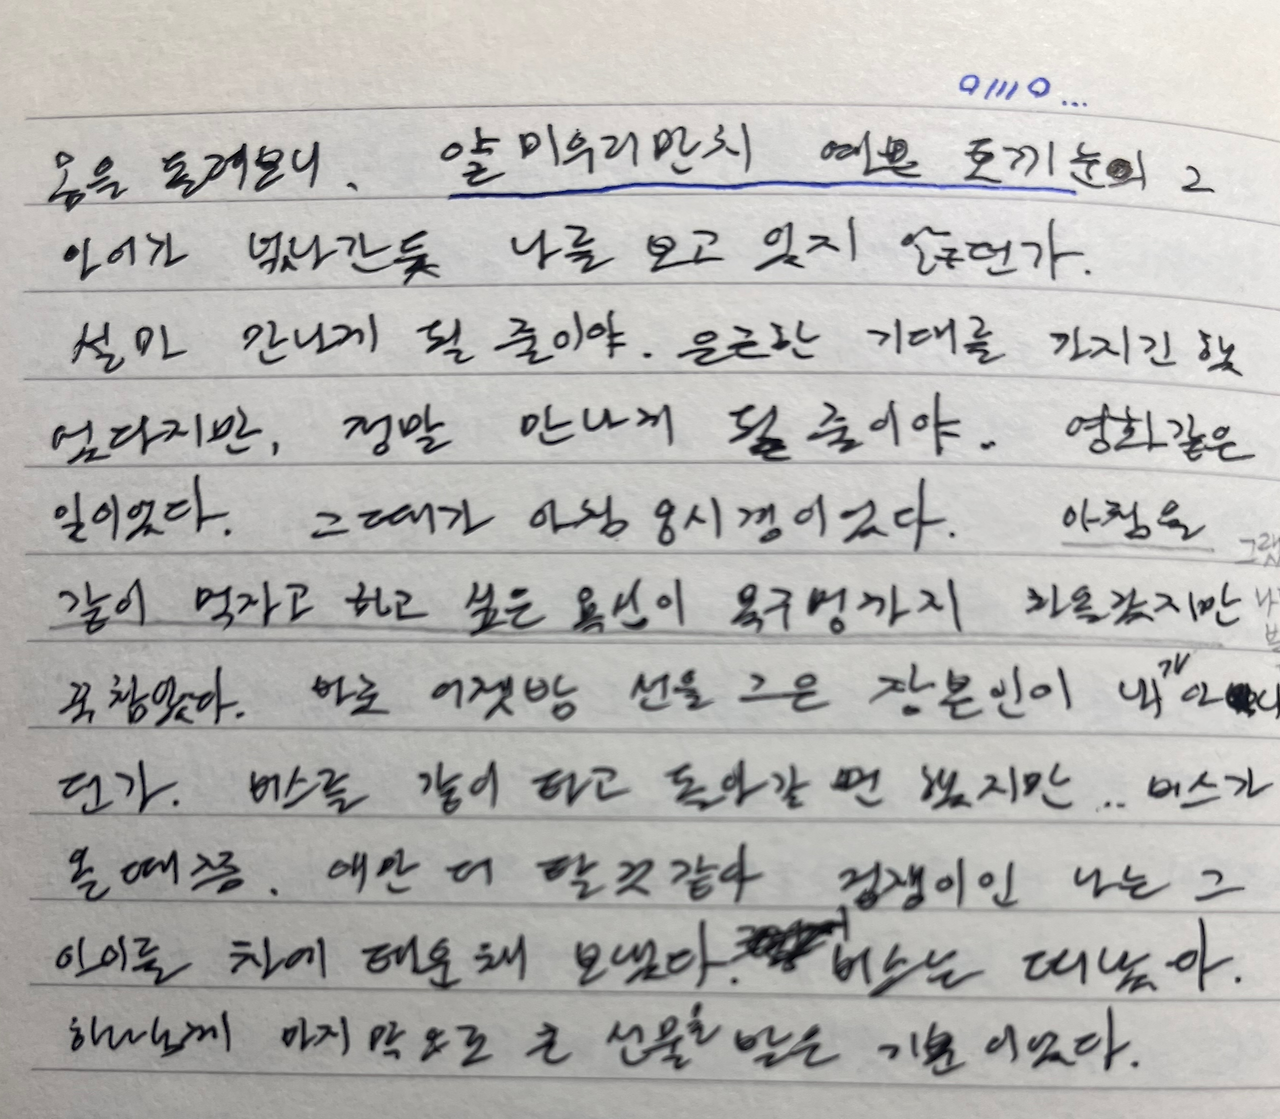 ㅇ///ㅇ...
몸을 돌려보니. 얄미우리만치 예쁜 토끼눈의 그
아이가 넋나간듯 나를 보고 있지 않던가.
설마 만나게 될 줄이야. 은근한 기대를 가지긴 했
었다지만, 정말 만나게 될 줄이야. 영화같은
일이었다. 그때가 아침 8시경이었다. 아침을
같이 먹자고 하고 싶은 욕심이 목구멍까지 차올랐지만
꾹 참았다. 바로 어젯밤 선을 그은 장본인이 내가
던가. 버스를 같이 타고 돌아갈 뻔 했지만.. 버스가
올 때쯤. 애만 더 탈 것 같아 겁쟁이인 나는 그
아이를 차에 태운채 보냈다. 버스는 떠났다.
하나님께 마지막으로 큰 선물을 받은 기분이었다.